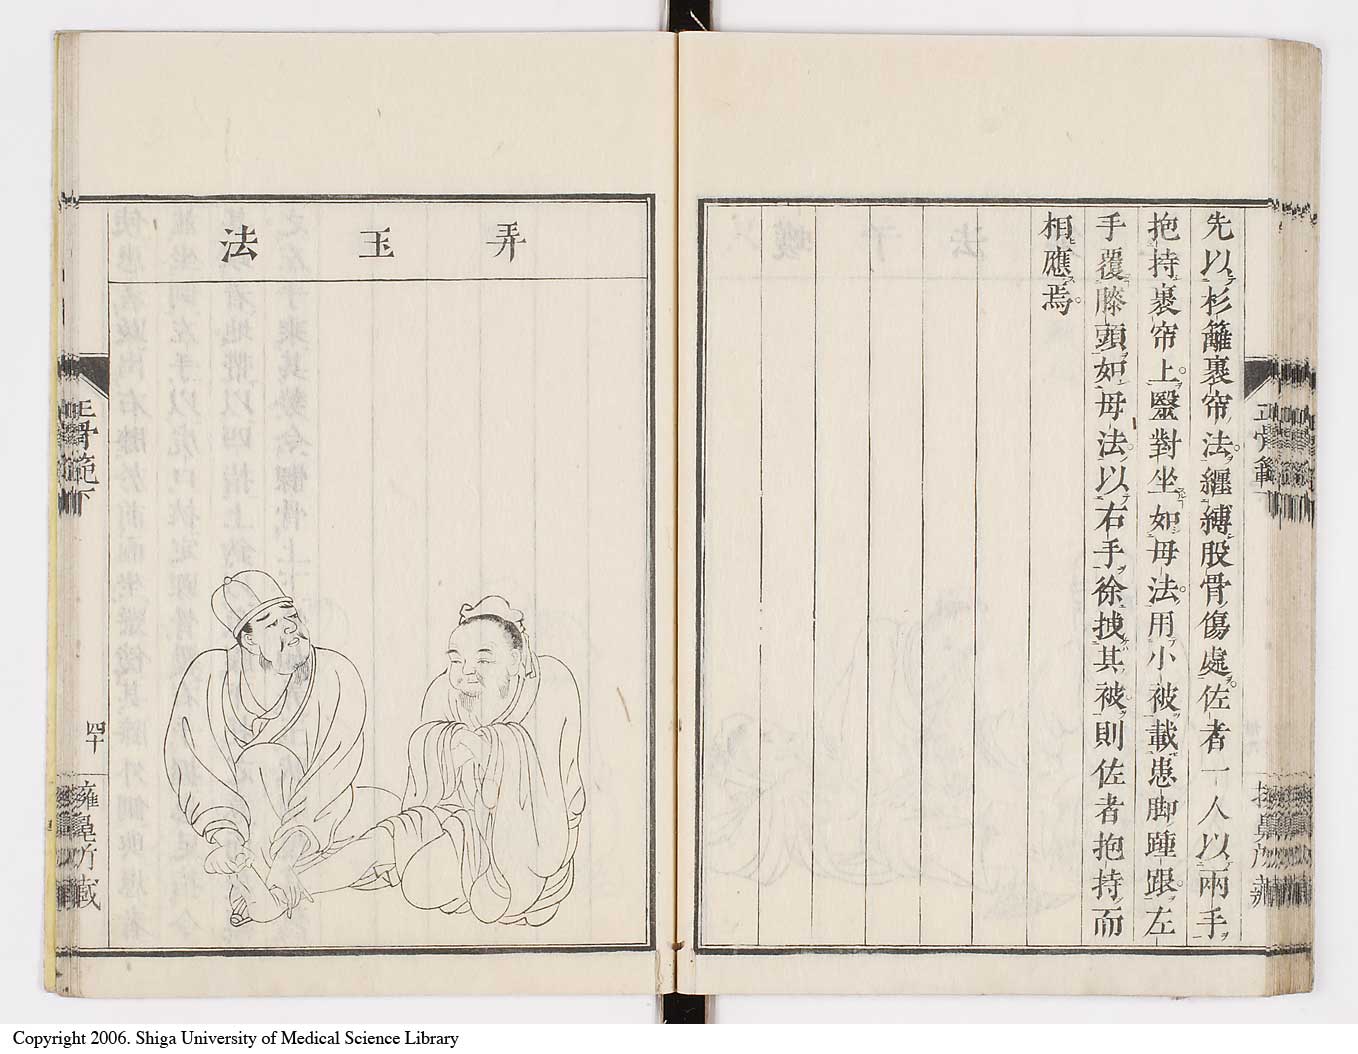 先以杉籬裹帘法纒縛股骨傷處佐者一人以兩手
抱持裹帘上毉對坐如母法用小被載患脚踵跟左
手覆膝頭如母法以右手徐拽其被則佐者抱持而
相應焉
弄玉法
正骨範下
四十
Copyright 2006. Shiga University of Medical Science Library